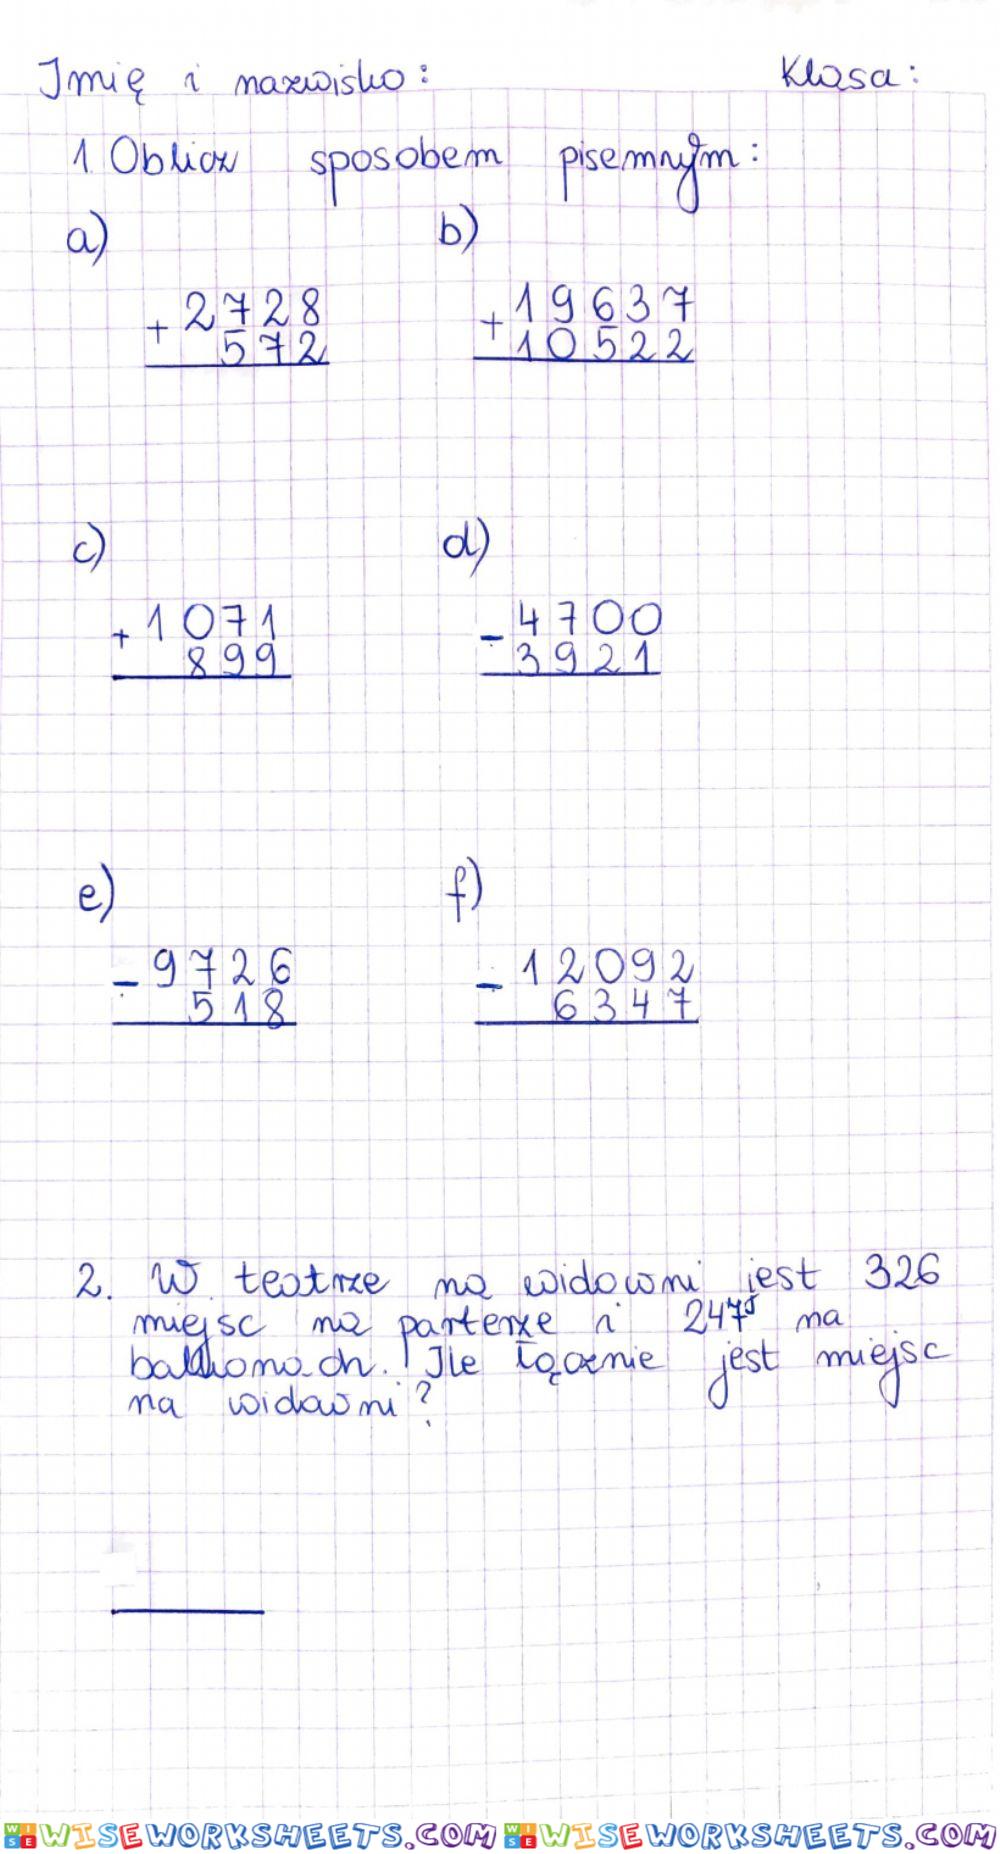 Imię i nazwisko: Klasa:
1. Oblicz sposobem pisemnym:
a) b)
+ 2728 + 19637
572 10522
c) d)
+ 1071 - 4700
899 3921
e) f)
- 9726 - 12092
518 6347
2. W teatrze na widowni jest 326
miejsc na parterze i 247 na
balkonach. Ile łącznie jest miejsc
na widowni?
WISEWORKSHEETS.COM WISEWORKSHEETS.COM